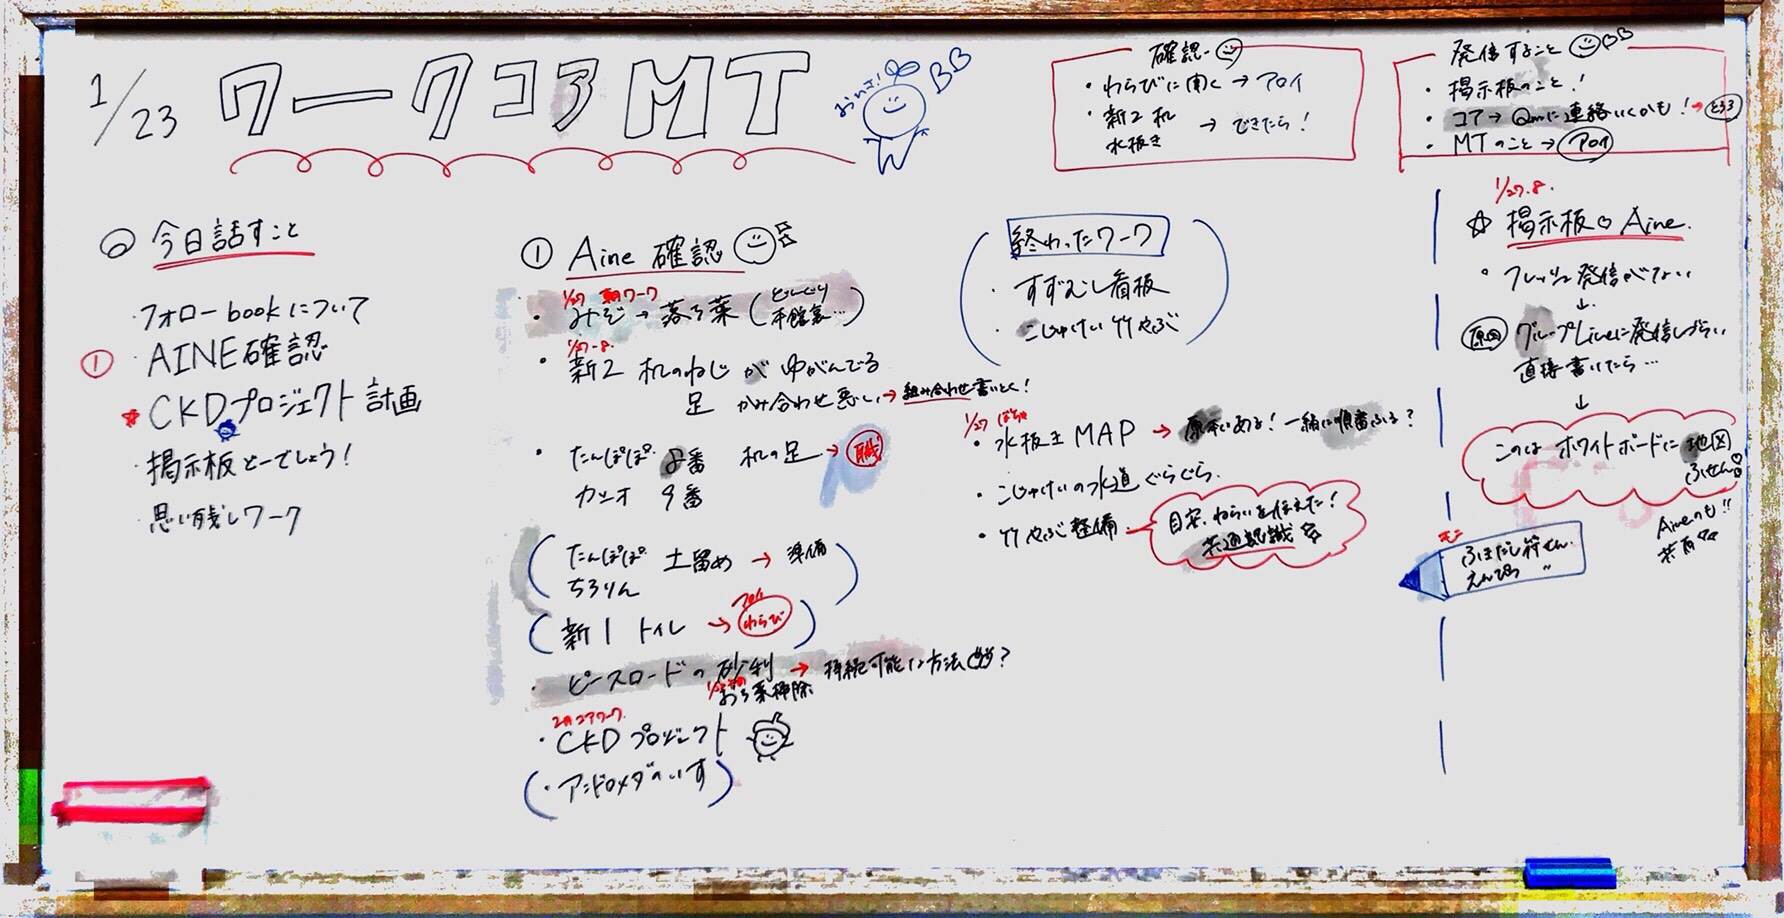 1/23 ワークコアMT
BB
確認
・わらびに聞く→アロイ
・新2机
水抜き → できたら!
発信すること BB
・掲示板のこと!
・コア→Qmに連絡いくかも!→
・MTのこと→アロイ
今日話すこと
・フォローbookについて
① ・AINE確認
CKDプロジェクト計画
・掲示板どーでしょう!
・思い残しワーク
① Aine 確認
1/27 朝ワーク
・みぞ→落ち葉(どんぐり
本館裏…)
1/27-8
・新2 机のねじがゆがんでる
足 かみ合わせ悪い→組み合わせ書いとく!
・たんぽぽ 8番 机の足→職
カシオ 9番
(たんぽぽ 土留め→準備)
ちろりん
アロイ
(新1 トイレ→わらび)
・ピースロードの砂利→持続可能な方法?
おち葉掃除
2月コアワーク
・CKDプロジェクト
(・アンドロメダのいす)
終わったワーク
・すずむし看板
・こじゅけい竹やぶ
1/27
・水抜き MAP → 原本いある!一緒に順番ふる?
・こじゅけいの水道ぐらぐら.
・竹やぶ整備
目安、ねらいを伝えた!
共通認識
1/27.8.
☆掲示板 Aine.
・フレッシュ発信がない
↓
原因 グループLineに発信しづらい
直接書いたら…
↓
このは ホワイトボードに地図
ふせん
Aineのも!!
共有
ふきだし付せん
えんぴつ 〃